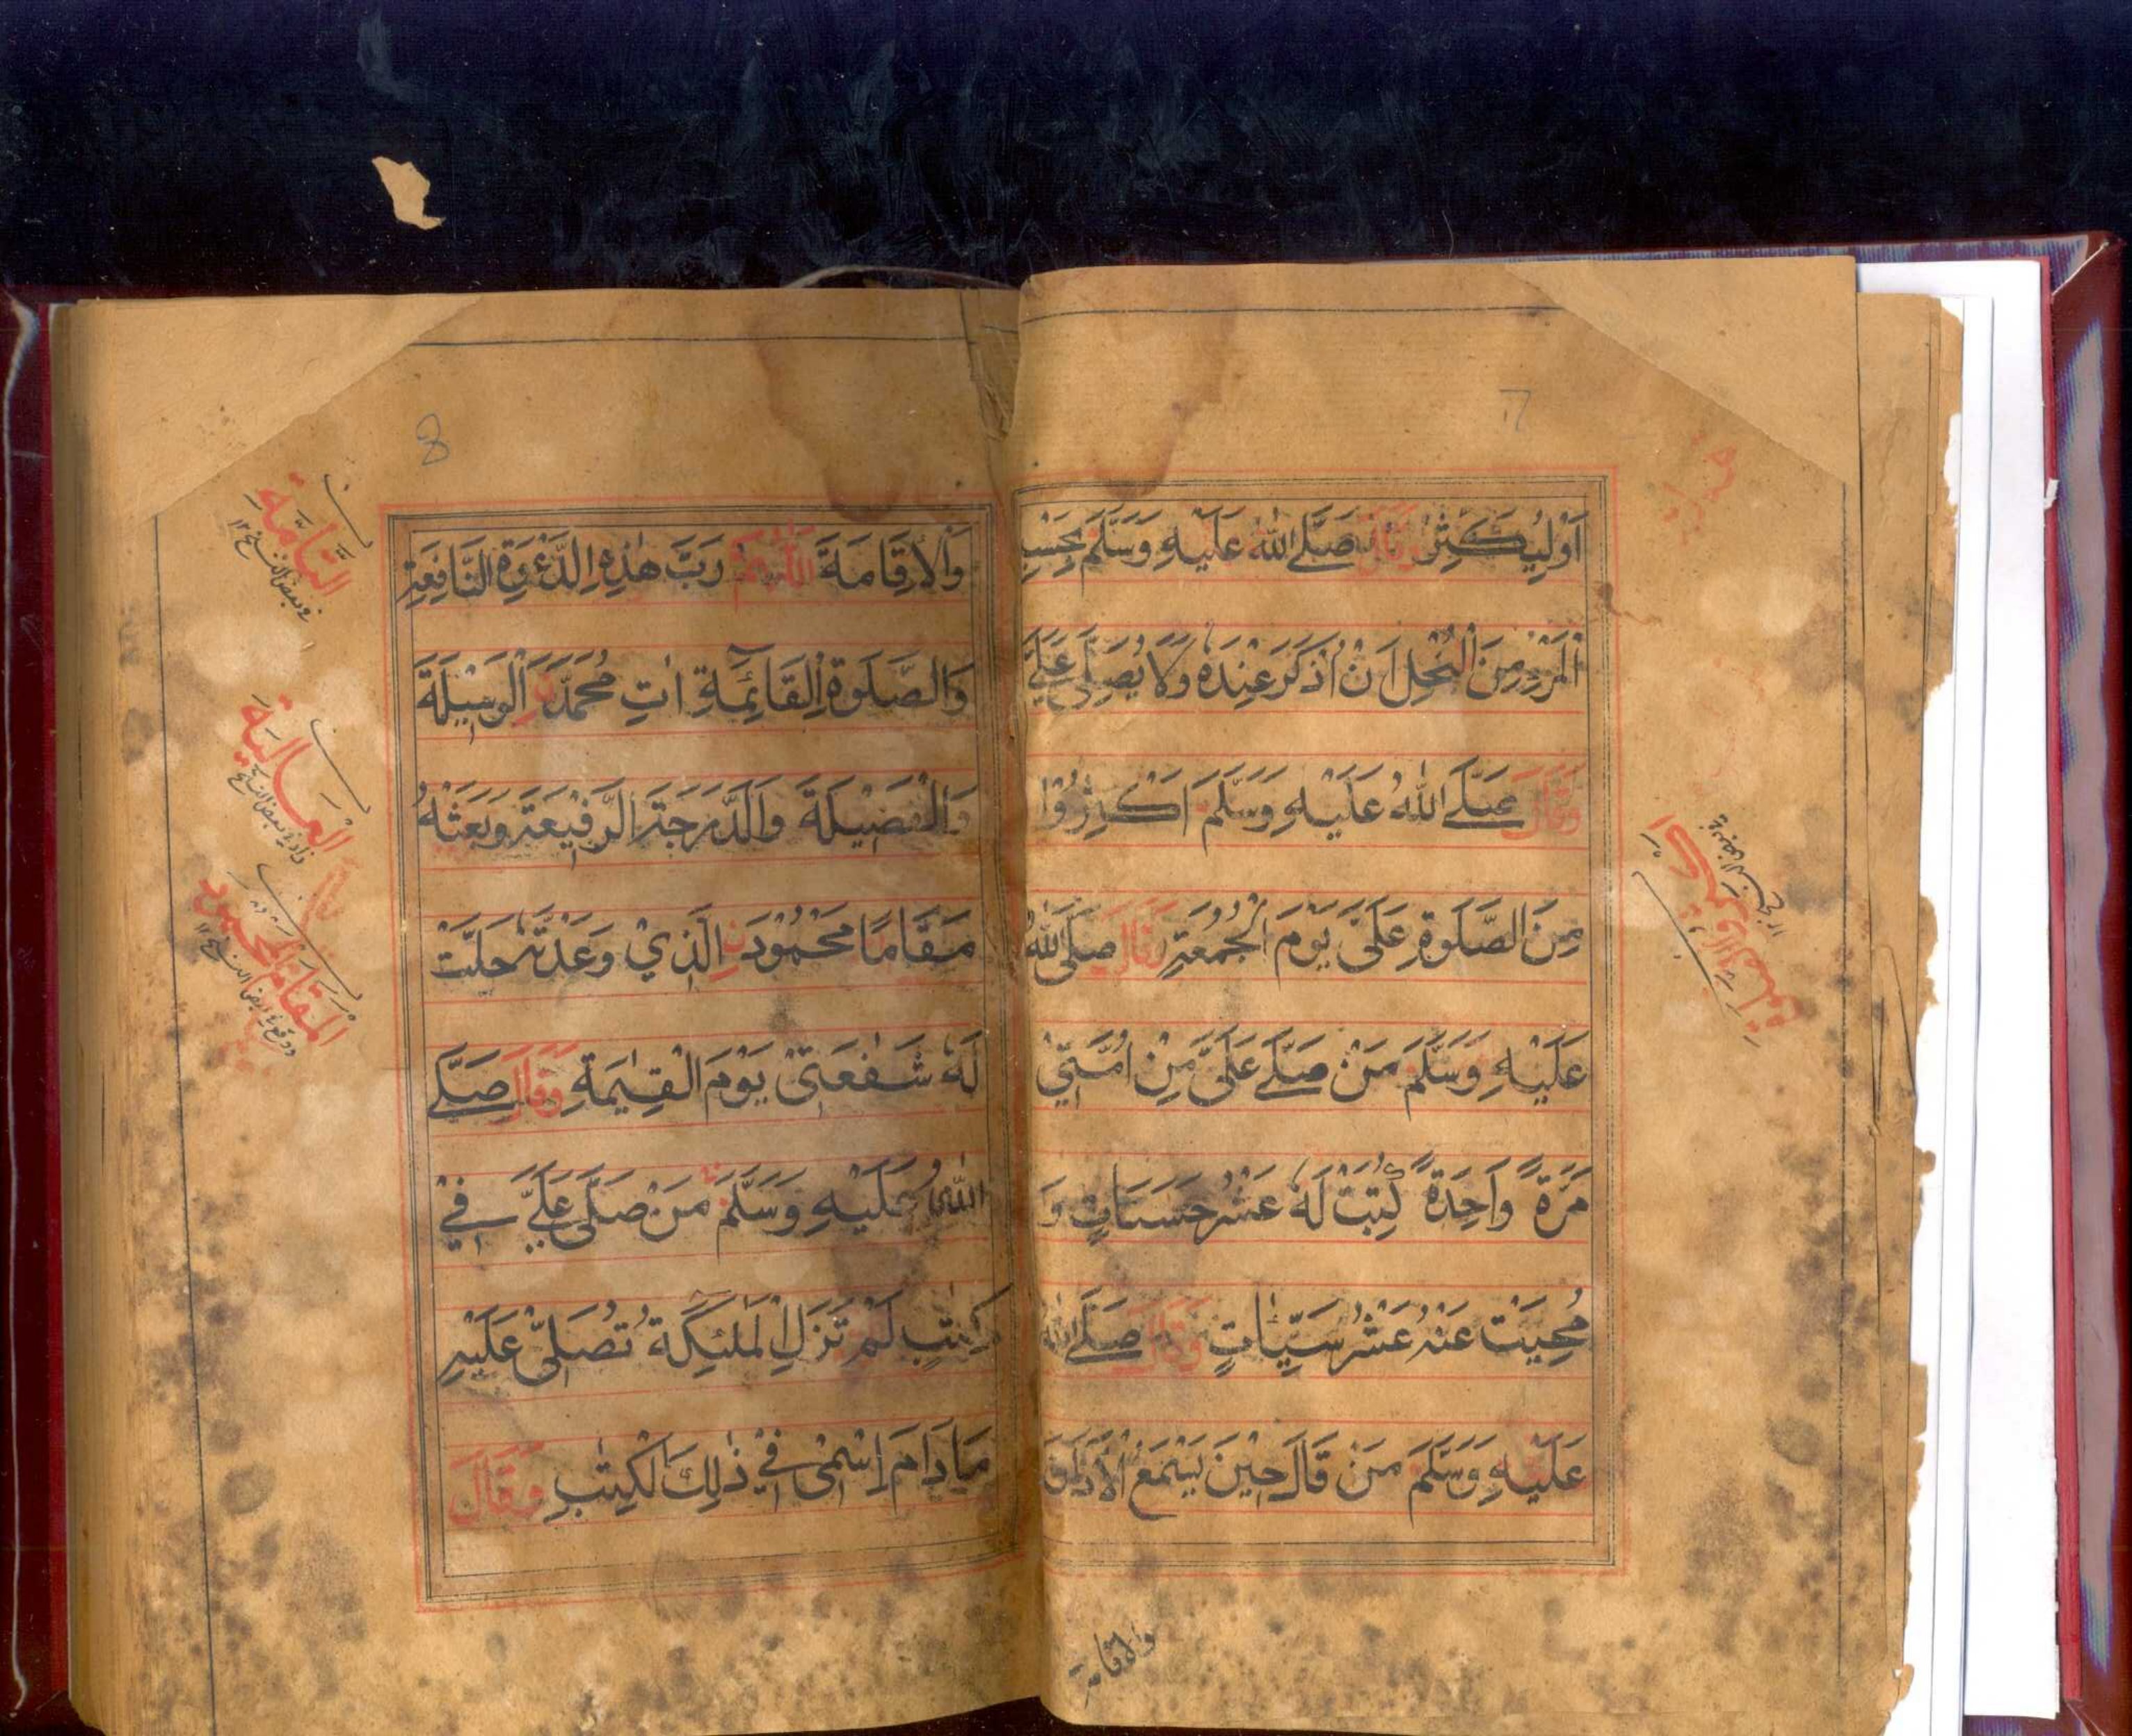 7
اَوْلِيُكْثِرْ وَقَالَ صَلَّے اللّٰهُ عَلَيْهِ وَسَلَّمَ بِحَسْبِ
الْمَرْءِ مِنَ الْبُخْلِ اَنْ اُذْكَرَ عِنْدَهٗ وَلَا يُصَلِّىْ عَلَىَّ
وَقَالَ صَلَّے اللّٰهُ عَلَيْهِ وَسَلَّمَ اَكْثِرُوْا
مِنَ الصَّلٰوةِ عَلَىَّ يَوْمَ الْجُمُعَةِ وَقَالَ صَلَّى اللّٰهُ
عَلَيْهِ وَسَلَّمَ مَنْ صَلّٰے عَلَىَّ مِنْ اُمَّتِيْ
مَرَّةً وَاحِدَةً كُتِبَتْ لَهٗ عَشْرُ حَسَنَاتٍ وَ
مُحِيَتْ عَنْهُ عَشْرُ سَيِّئَاتٍ وَقَالَ صَلَّے اللّٰهُ
عَلَيْهِ وَسَلَّمَ مَنْ قَالَ حِيْنَ يَسْمَعُ الْاَذَانَ
والاقامة
8
وَالْاِقَامَةَ اَللّٰهُمَّ رَبَّ هٰذِهِ الدَّعْوَةِ النَّافِعَةِ
وَالصَّلٰوةِ الْقَائِمَةِ اٰتِ مُحَمَّدَنِ الْوَسِيْلَةَ
وَالْفَضِيْلَةَ وَالدَّرَجَةَ الرَّفِيْعَةَ وَبَعَثْهُ
مَقَامًا مَحْمُوْدَنِ الَّذِيْ وَعَدْتَّهٗ حَلَّتْ
لَهٗ شَفٰعَتِىْ يَوْمَ الْقِيٰمَةِ وَقَالَ صَلَّے
اللّٰهُ عَلَيْهِ وَسَلَّمَ مَنْ صَلّٰى عَلَيَّ فِيْ
كِتٰبٍ لَمْ تَزَلِ الْمَلٰئِكَةُ تُصَلِّىْ عَلَيْهِ
مَا دَامَ اسْمِىْ فِيْ ذٰلِكَ الْكِتٰبِ وَقَالَ
التَّامَّةِ
وبعض النسخ ١٢
الْعَالِيَةَ
الْمَقَامَ الْمَحْمُوْدَ